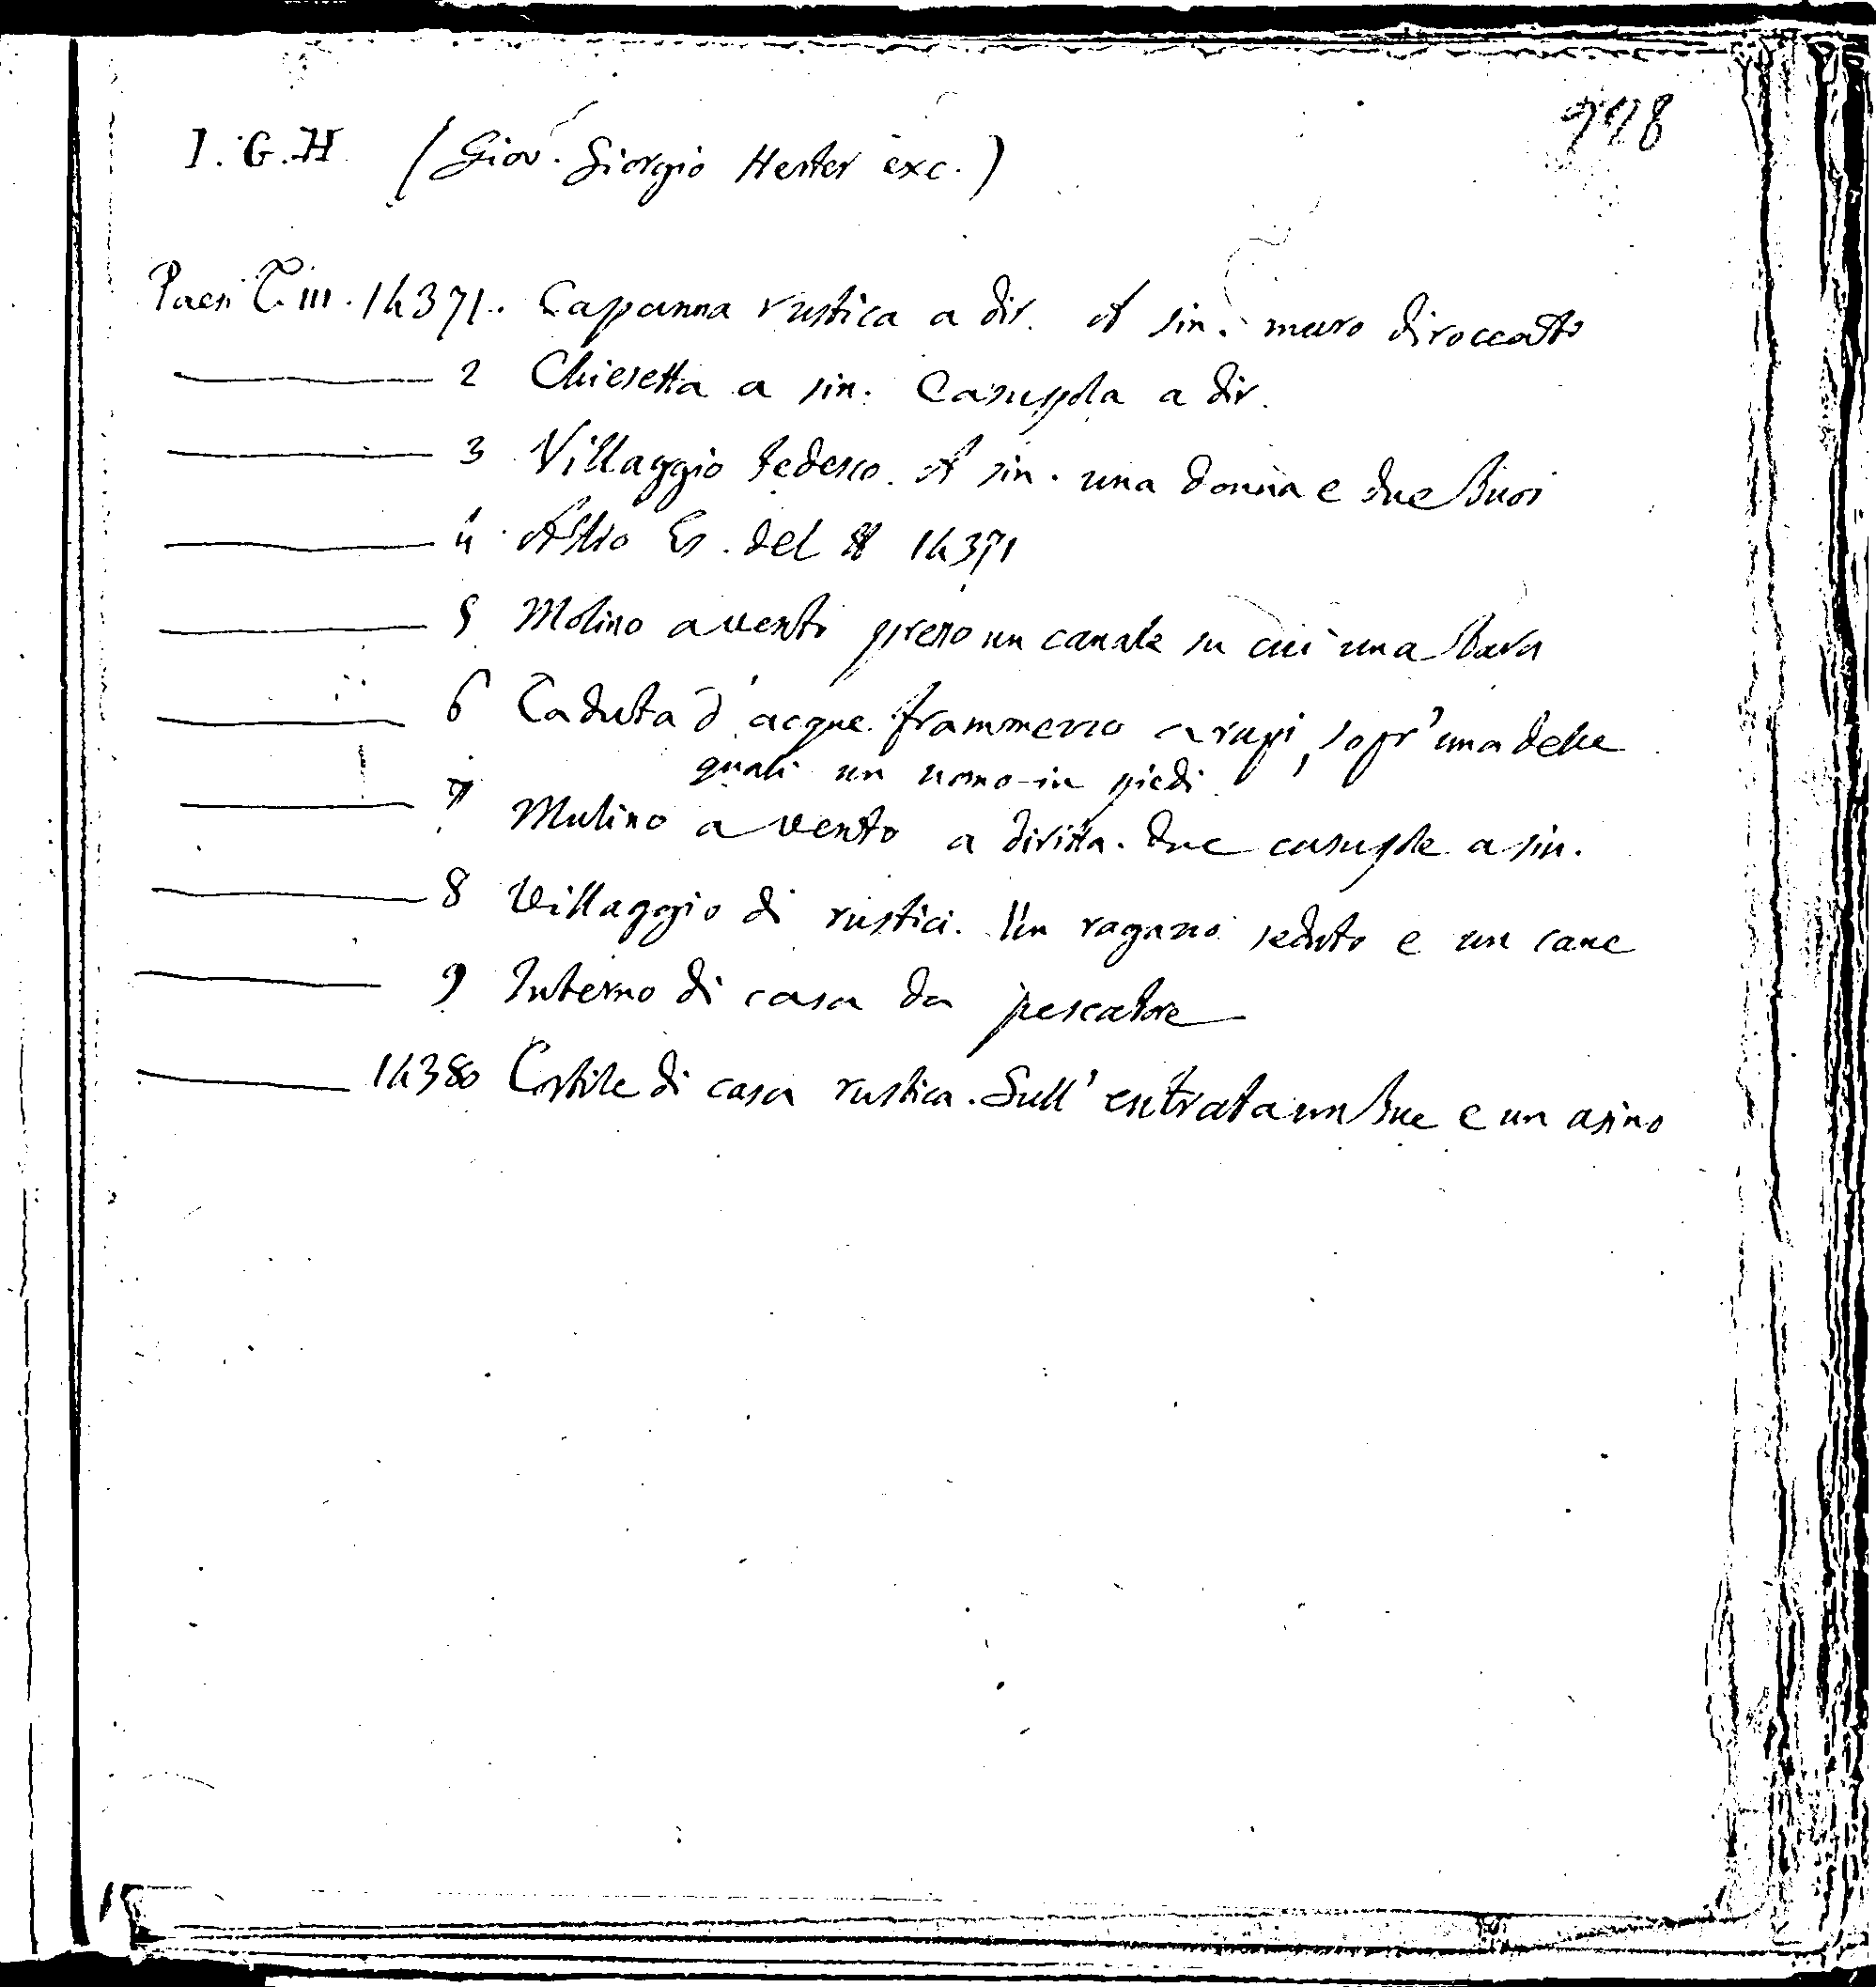 978
I. G. H (Giov. Giorgio Herter exc.)
Paesi T. III. 14371. Capanna rustica a dir. A sin. muro diroccato
2 Chiesetta a sin. Casuppola a dir.
3 Villaggio tedesco. A sin. una donna e due buoi
4 Altro Es. del 14371
5 Molino a vento presso un canale su cui una barca
6 Caduta d'acque frammezzo a rupi, sopr'una delle
quali un uomo in piedi
7 Mulino a vento a diritta. due casupole a sin.
8 Villaggio di rustici. Un ragazzo seduto e un cane
9 Interno di casa da pescatore
14380 Cortile di casa rustica. Sull'entrata un bue e un asino